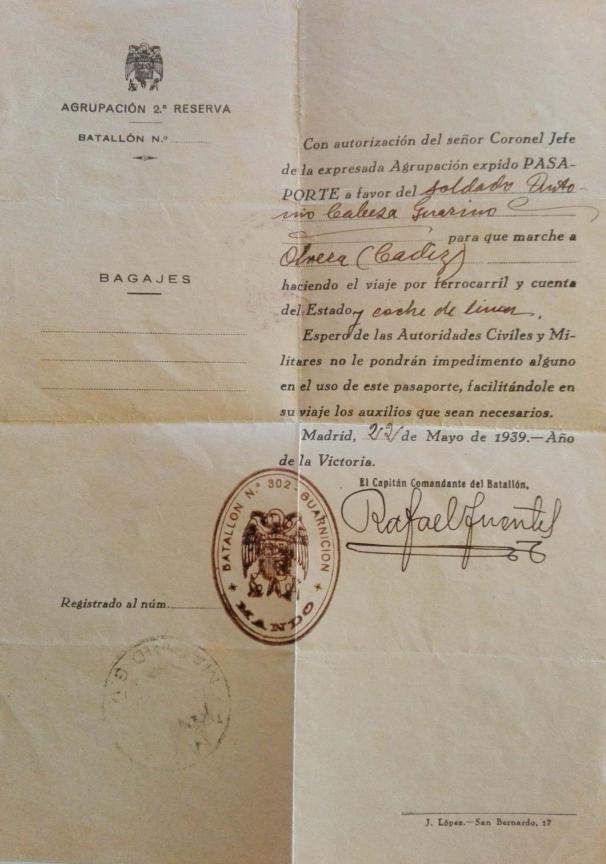 AGRUPACIÓN 2.ª RESERVA
BATALLÓN N.º
BAGAJES
Con autorización del señor Coronel Jefe
de la expresada Agrupación expido PASA-
PORTE a favor del soldado Anto-
nio Cabeza Guarino
para que marche a
Olvera (Cadiz)
haciendo el viaje por ferrocarril y cuenta
del Estado y coche de linea.
Espero de las Autoridades Civiles y Mi-
litares no le pondrán impedimento alguno
en el uso de este pasaporte, facilitándole en
su viaje los auxilios que sean necesarios.
Madrid, 22 de Mayo de 1939.—Año
de la Victoria.
El Capitán Comandante del Batallón,
Rafael Fuentes
BATALLON N.º 302 - GUARNICION
MANDO
Registrado al núm.
J. López.—San Bernardo, 17